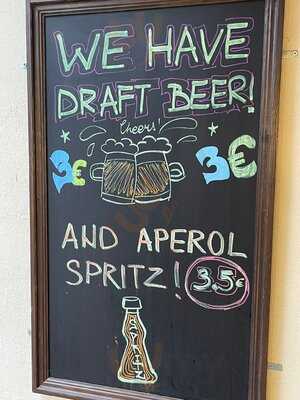 WE HAVE
DRAFT BEER!
Cheers!
3€ 3€
AND APEROL
SPRITZ! 3.5€